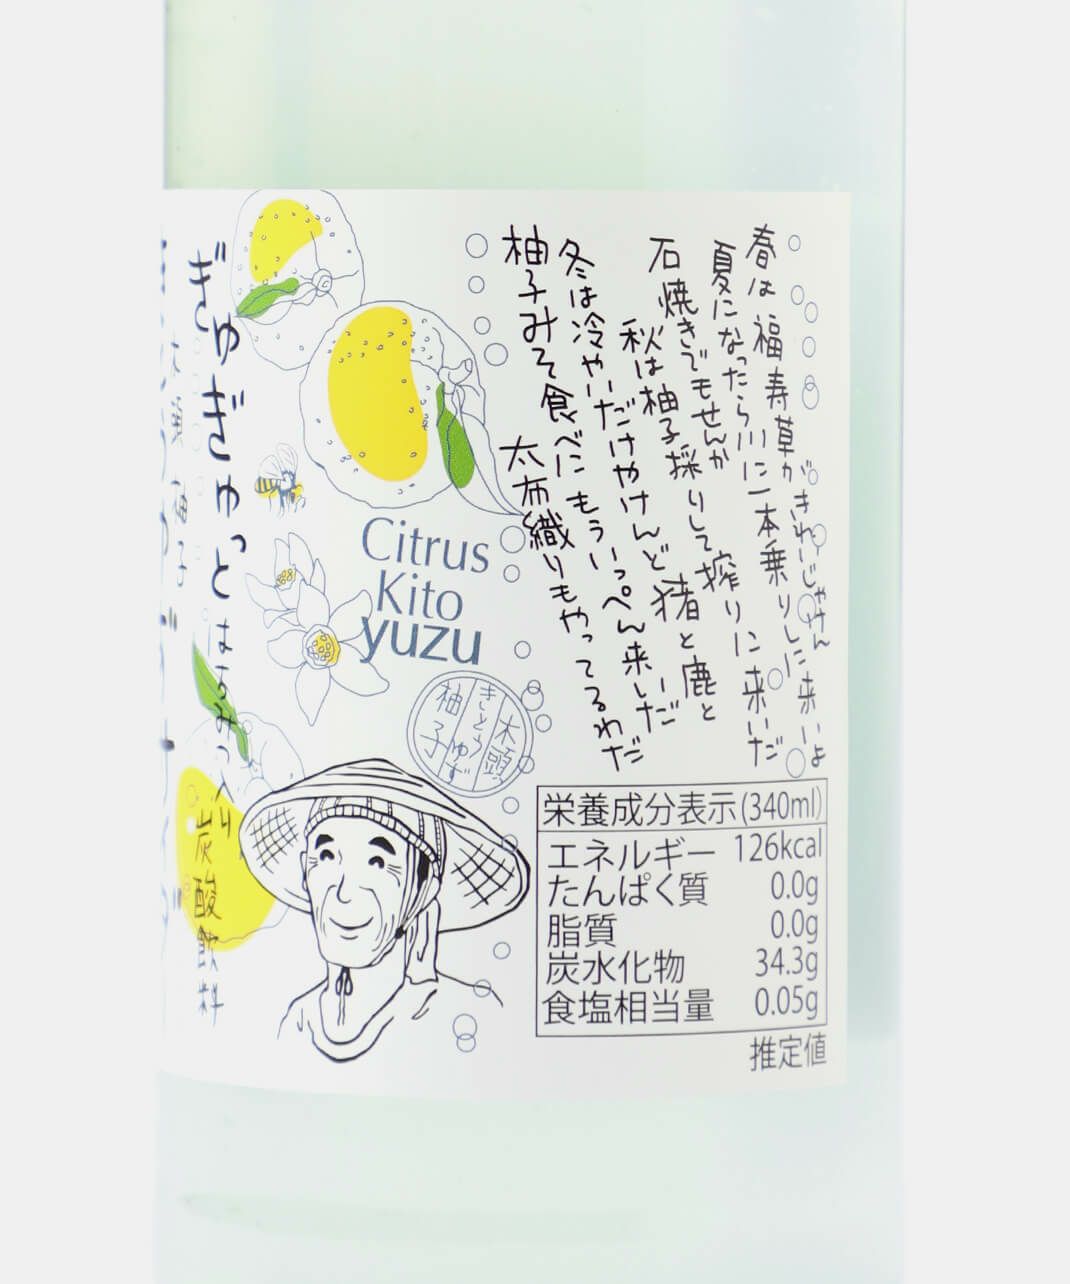 春は福寿草がきれいじゃけん来いよ
夏になったら川に一本乗りしに来いだ
石焼きでもせんか
秋は柚子採りして搾りに来いだ
冬は冷やいだけやけんど猪と鹿と
柚子みそ食べにもういっぺん来いだ
太布織りもやってるわだ
ぎゅぎゅっとはちみつ入り
木頭柚子
炭酸飲料
Citrus
Kito
yuzu
木頭
きとうゆず
柚子
栄養成分表示(340ml)
エネルギー 126kcal
たんぱく質 0.0g
脂質 0.0g
炭水化物 34.3g
食塩相当量 0.05g
推定値